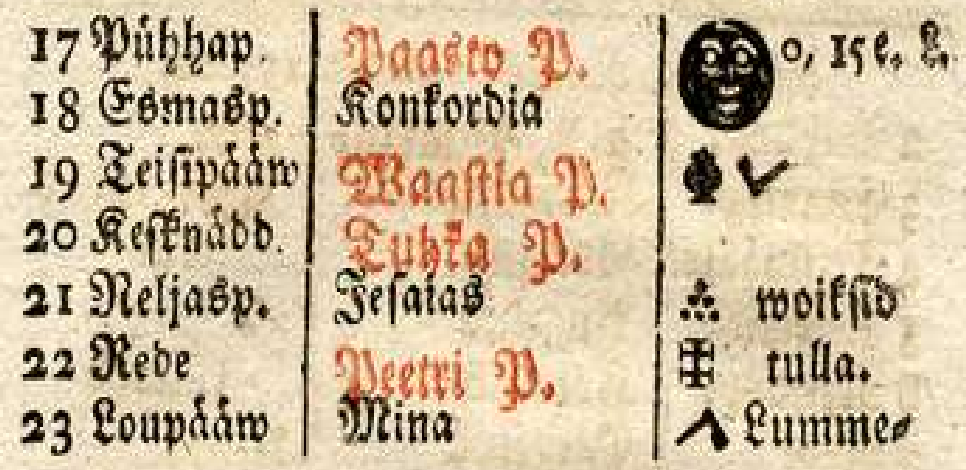 17 Pühhap. Paasto P. 0, 15 e. L.
18 Esmasp. Konkordia
19 Teisipääw Waastla P.
20 Keſknädd. Tuhka P.
21 Neljasp. Jeſaias woikſid
22 Rede Peetri P. tulla.
23 Loupääw Mina Lumme⸗